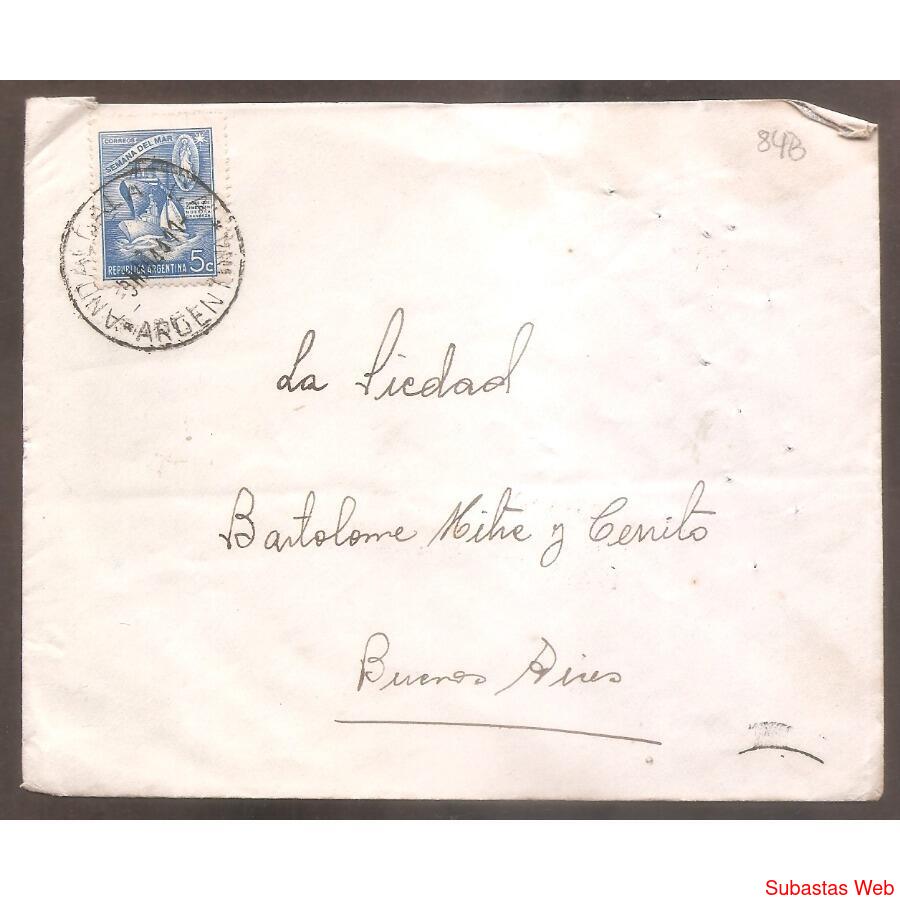 CORREOS
SEMANA DEL MAR
REPUBLICA ARGENTINA 5c
ARGENTINA
84B
La Piedad
Bartolome Mitre y Cerrito
Buenos Aires
Subastas Web